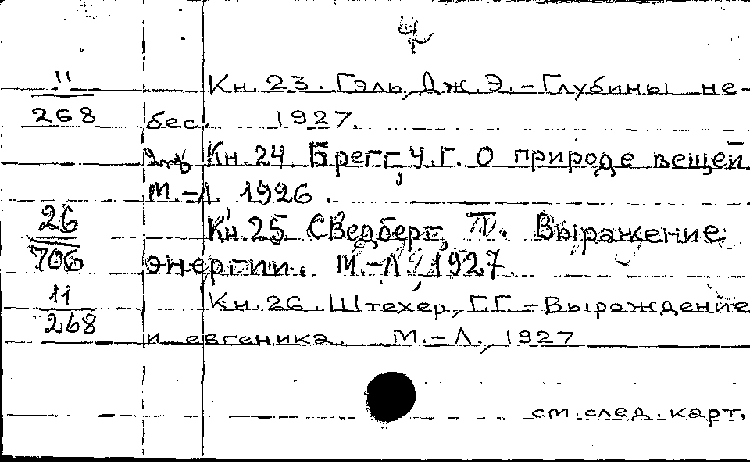 4
11
268
Кн. 23. Гэль, Дж. Э. - Глубины не-
бес. 1927.
Кн. 24. Брегг, У. Г. О природе вещей
М.-Л. 1926.
26
706
Кн. 25 Сведберг, Т. Выражение
энергии. М.-Л., 1927
11
268
Кн. 26. Штехер, Г.Г. - Вырождение
и евгеника. М.-Л., 1927
см. след. карт.